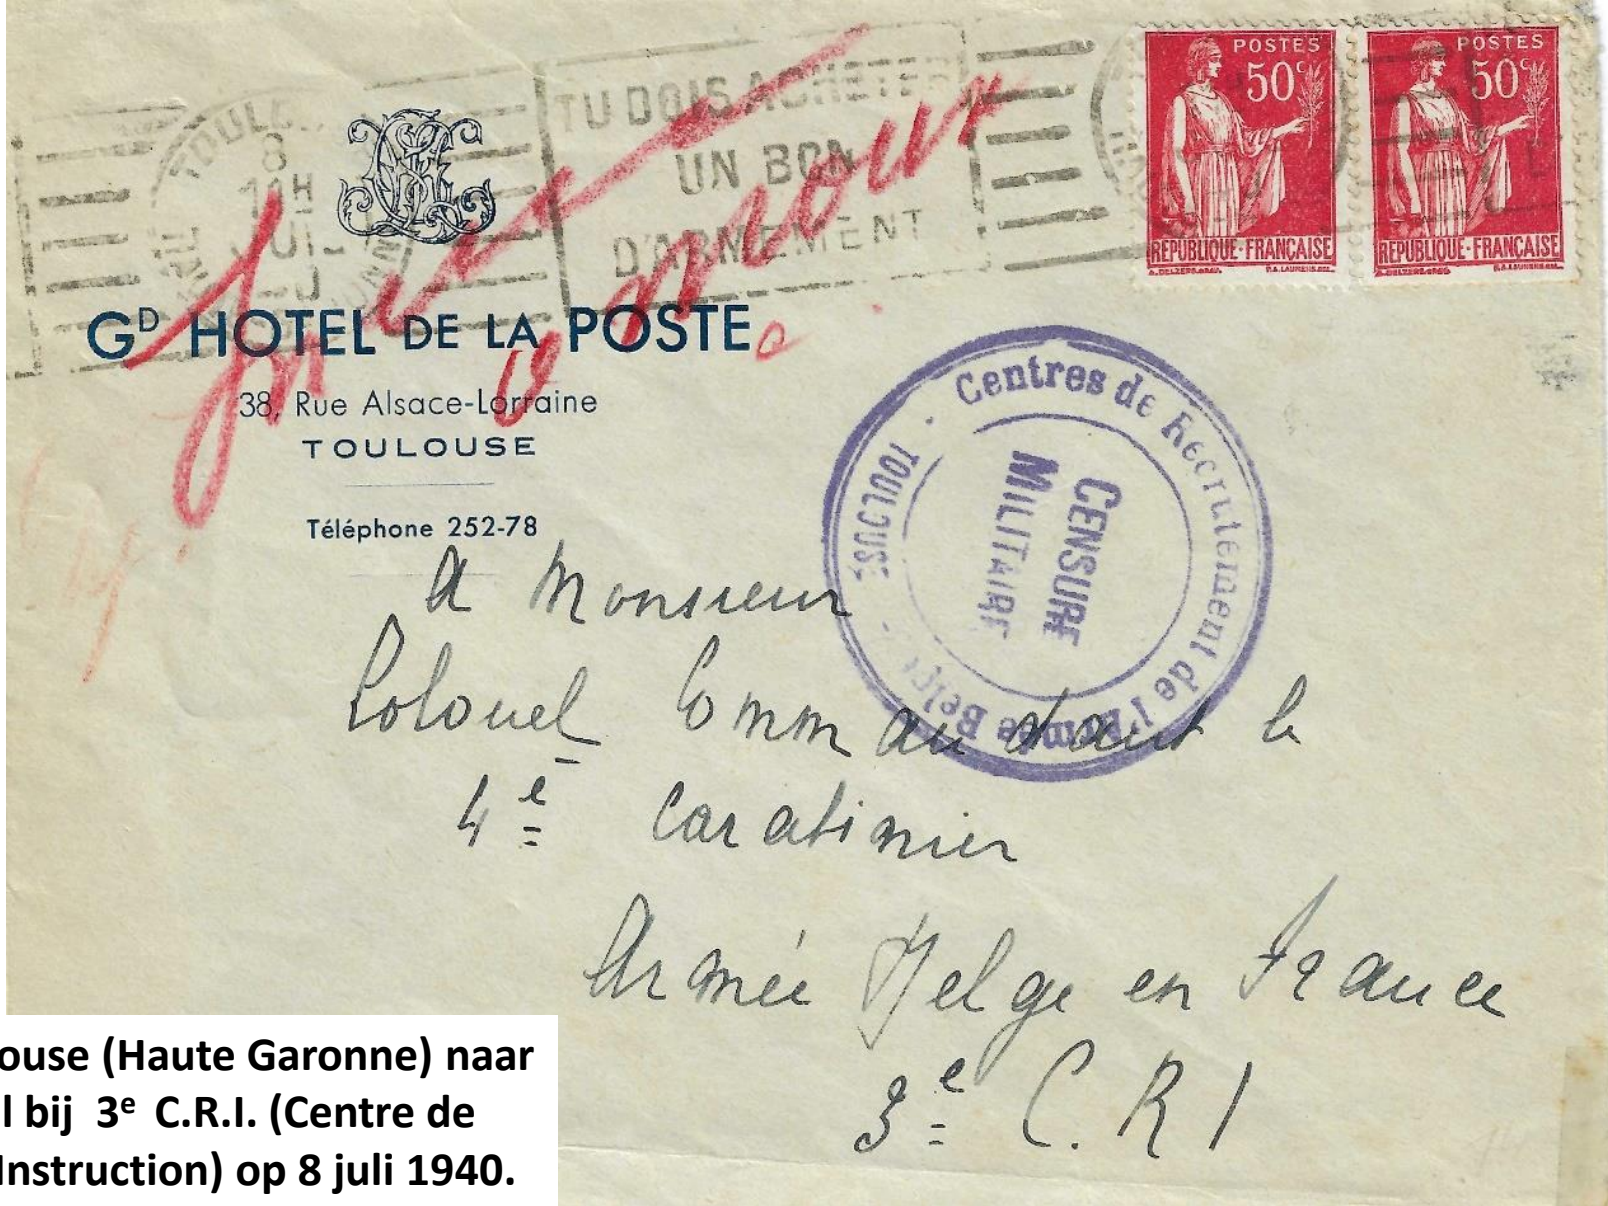 TOUL
8
H
JUIL
TU DOIS ACHETER
UN BON
D'ARMEMENT
POSTES
50c
REPUBLIQUE-FRANÇAISE
POSTES
50c
REPUBLIQUE-FRANÇAISE
GD HOTEL DE LA POSTE
38, Rue Alsace-Lorraine
TOULOUSE
Téléphone 252-78
Centres de Recrutement de l'Armée Belge - TOULOUSE -
CENSURE
MILITAIRE
A Monsieur
Colonel Commandant le
4e Carabinier
Armée Belge en France
3e C. R I
ouse (Haute Garonne) naar
l bij 3e C.R.I. (Centre de
Instruction) op 8 juli 1940.